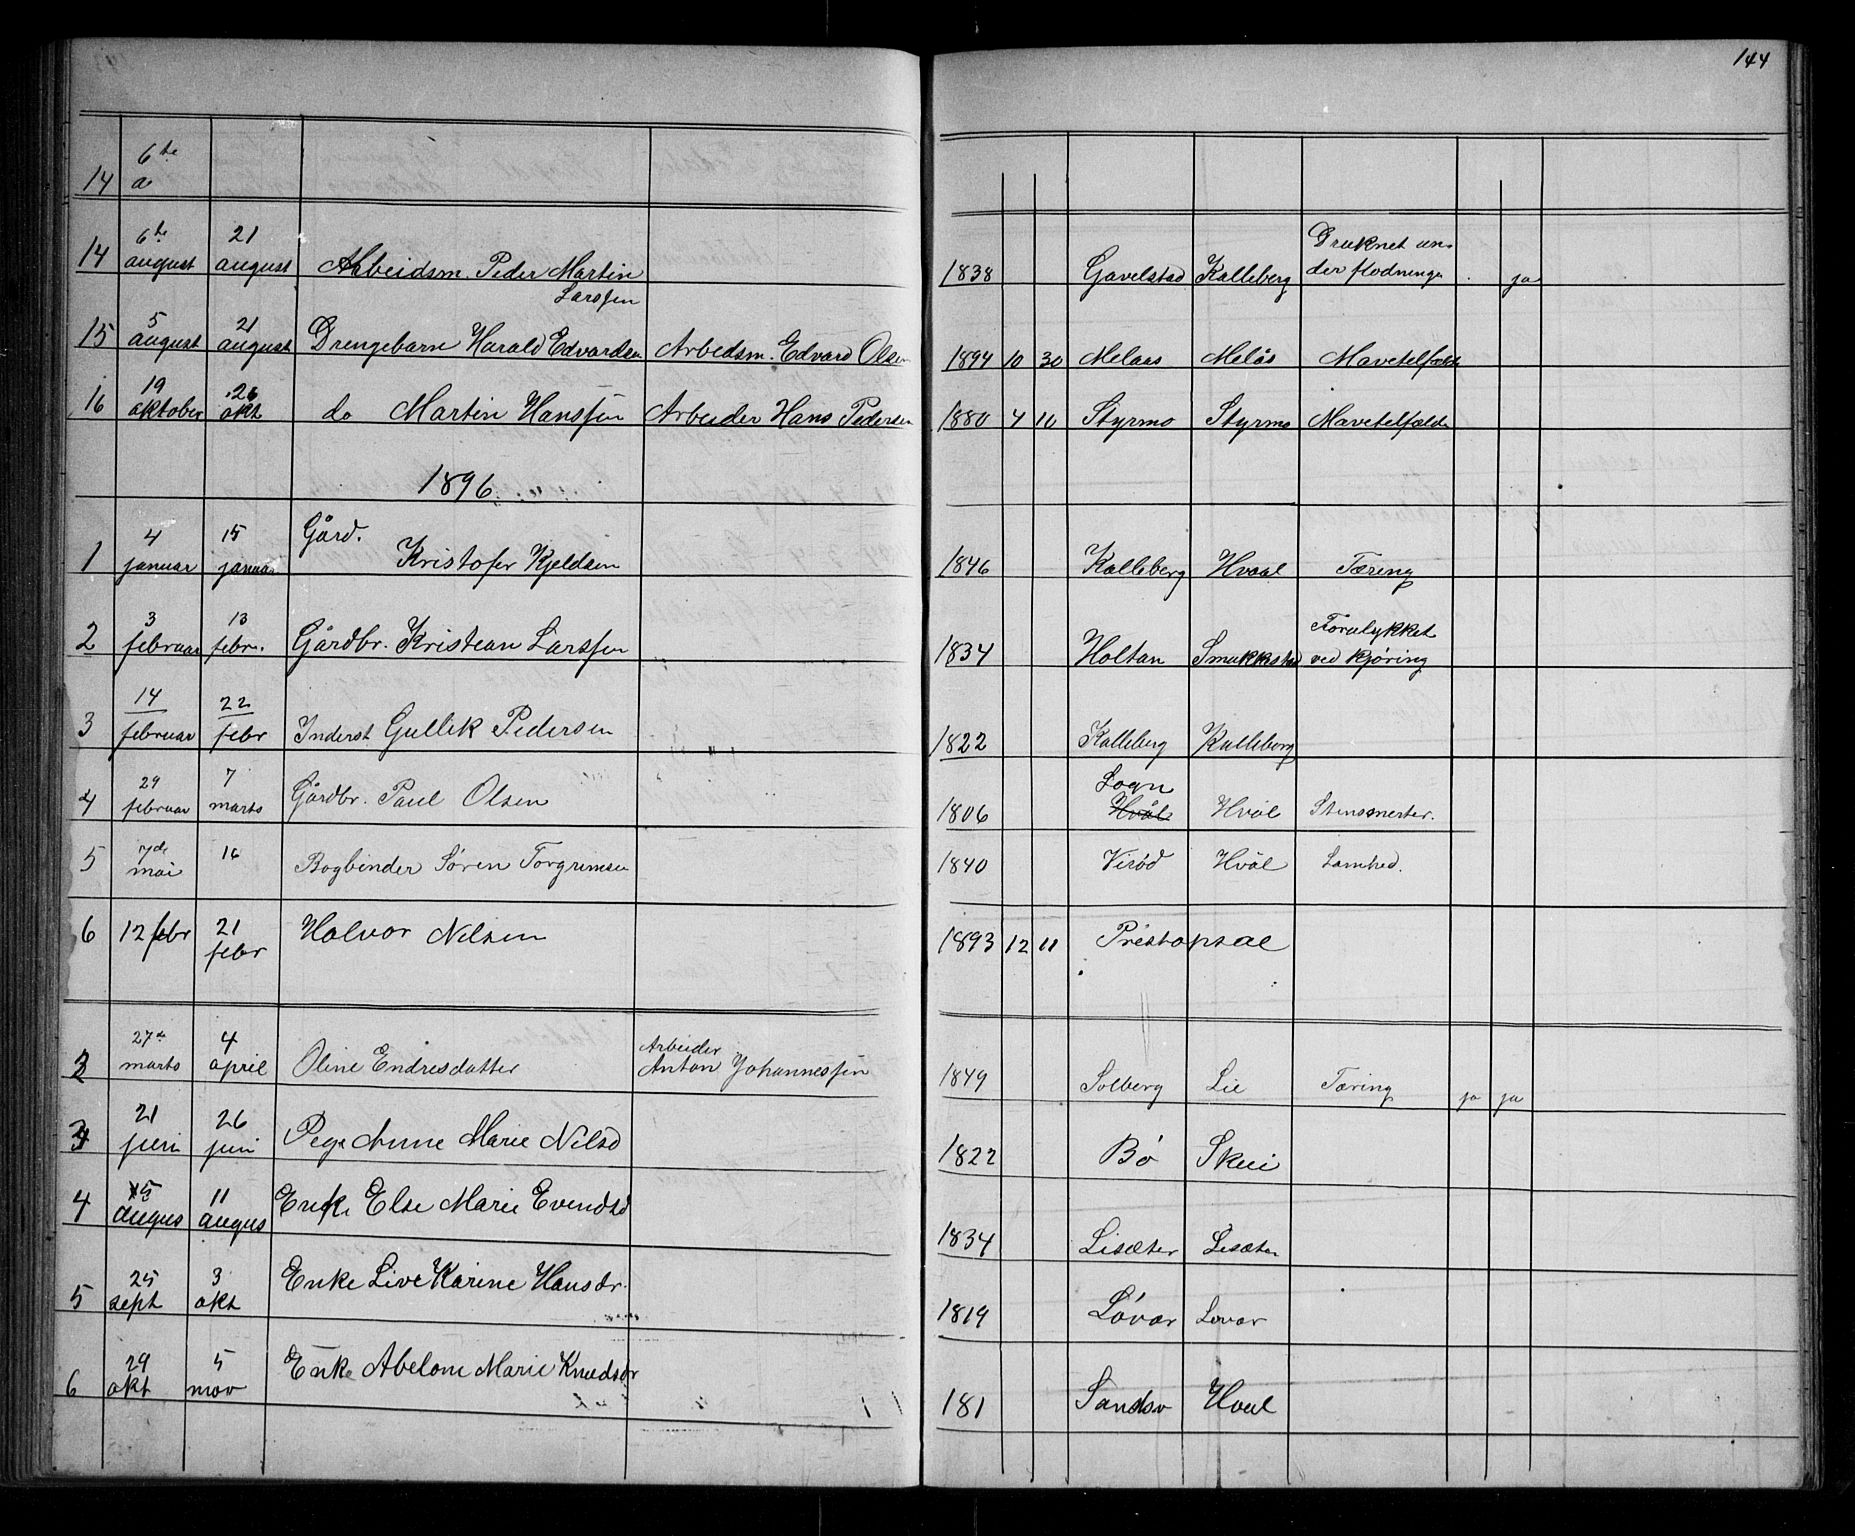 144
14 6te a
14 6te august 21 august Arbeidsm. Peder Martin Larssen 1838 Gavelstad Kalleberg Druknet un- der flødninge ja
15 5 august 21 august Drengebarn Harald Edvardsen Arbedsm. Edvard Olsen 1894 10 30 Melaas Melås Mavetelfælde
16 19 oktober 26 okt do Martin Hanssen Arbeider Hans Pedersen 1880 4 10 Styrmo Styrmo Mavetelfælde
1896
1 4 januar 15 januar Gård. Kristofer Kjeldsen 1846 Kalleberg Hvaal Tæring
2 3 februar 13 febr. Gårdbr. Kristean Larssen 1834 Holtan Smukkestad Forulykket ved kjøring
3 14 februar 22 febr Inderst Gullik Pedersen 1822 Kalleberg Kalleberg
4 29 februar 7 marts Gårdbr. Paul Olsen 1806 Sogn Hvål Hvål Stensmerter.
5 7de mai 16 Bogbinder Søren Torgrimsen 1840 Virød Hvål Lamhed.
6 12 febr 21 febr Halvor Nilsen 1893 12 11 Prestopsal
3 27de marts 4 april Oline Endresdatter Arbeider Anton Johannessen 1849 Solberg Lie Tæring ja ja
juni 21 26 juni Pige Anne Marie Nilsd 1822 Bø Skui
4 5 augus 11 augus Enke Else Marie Evendsd 1834 Lisæter Lisæter
5 25 sept 3 okt Enke Live Karine Hansdr. 1819 Løvar Lovar
6 29 okt 5 nov Enke Abelone Marie Knudsdr 181 Sandsv Hval